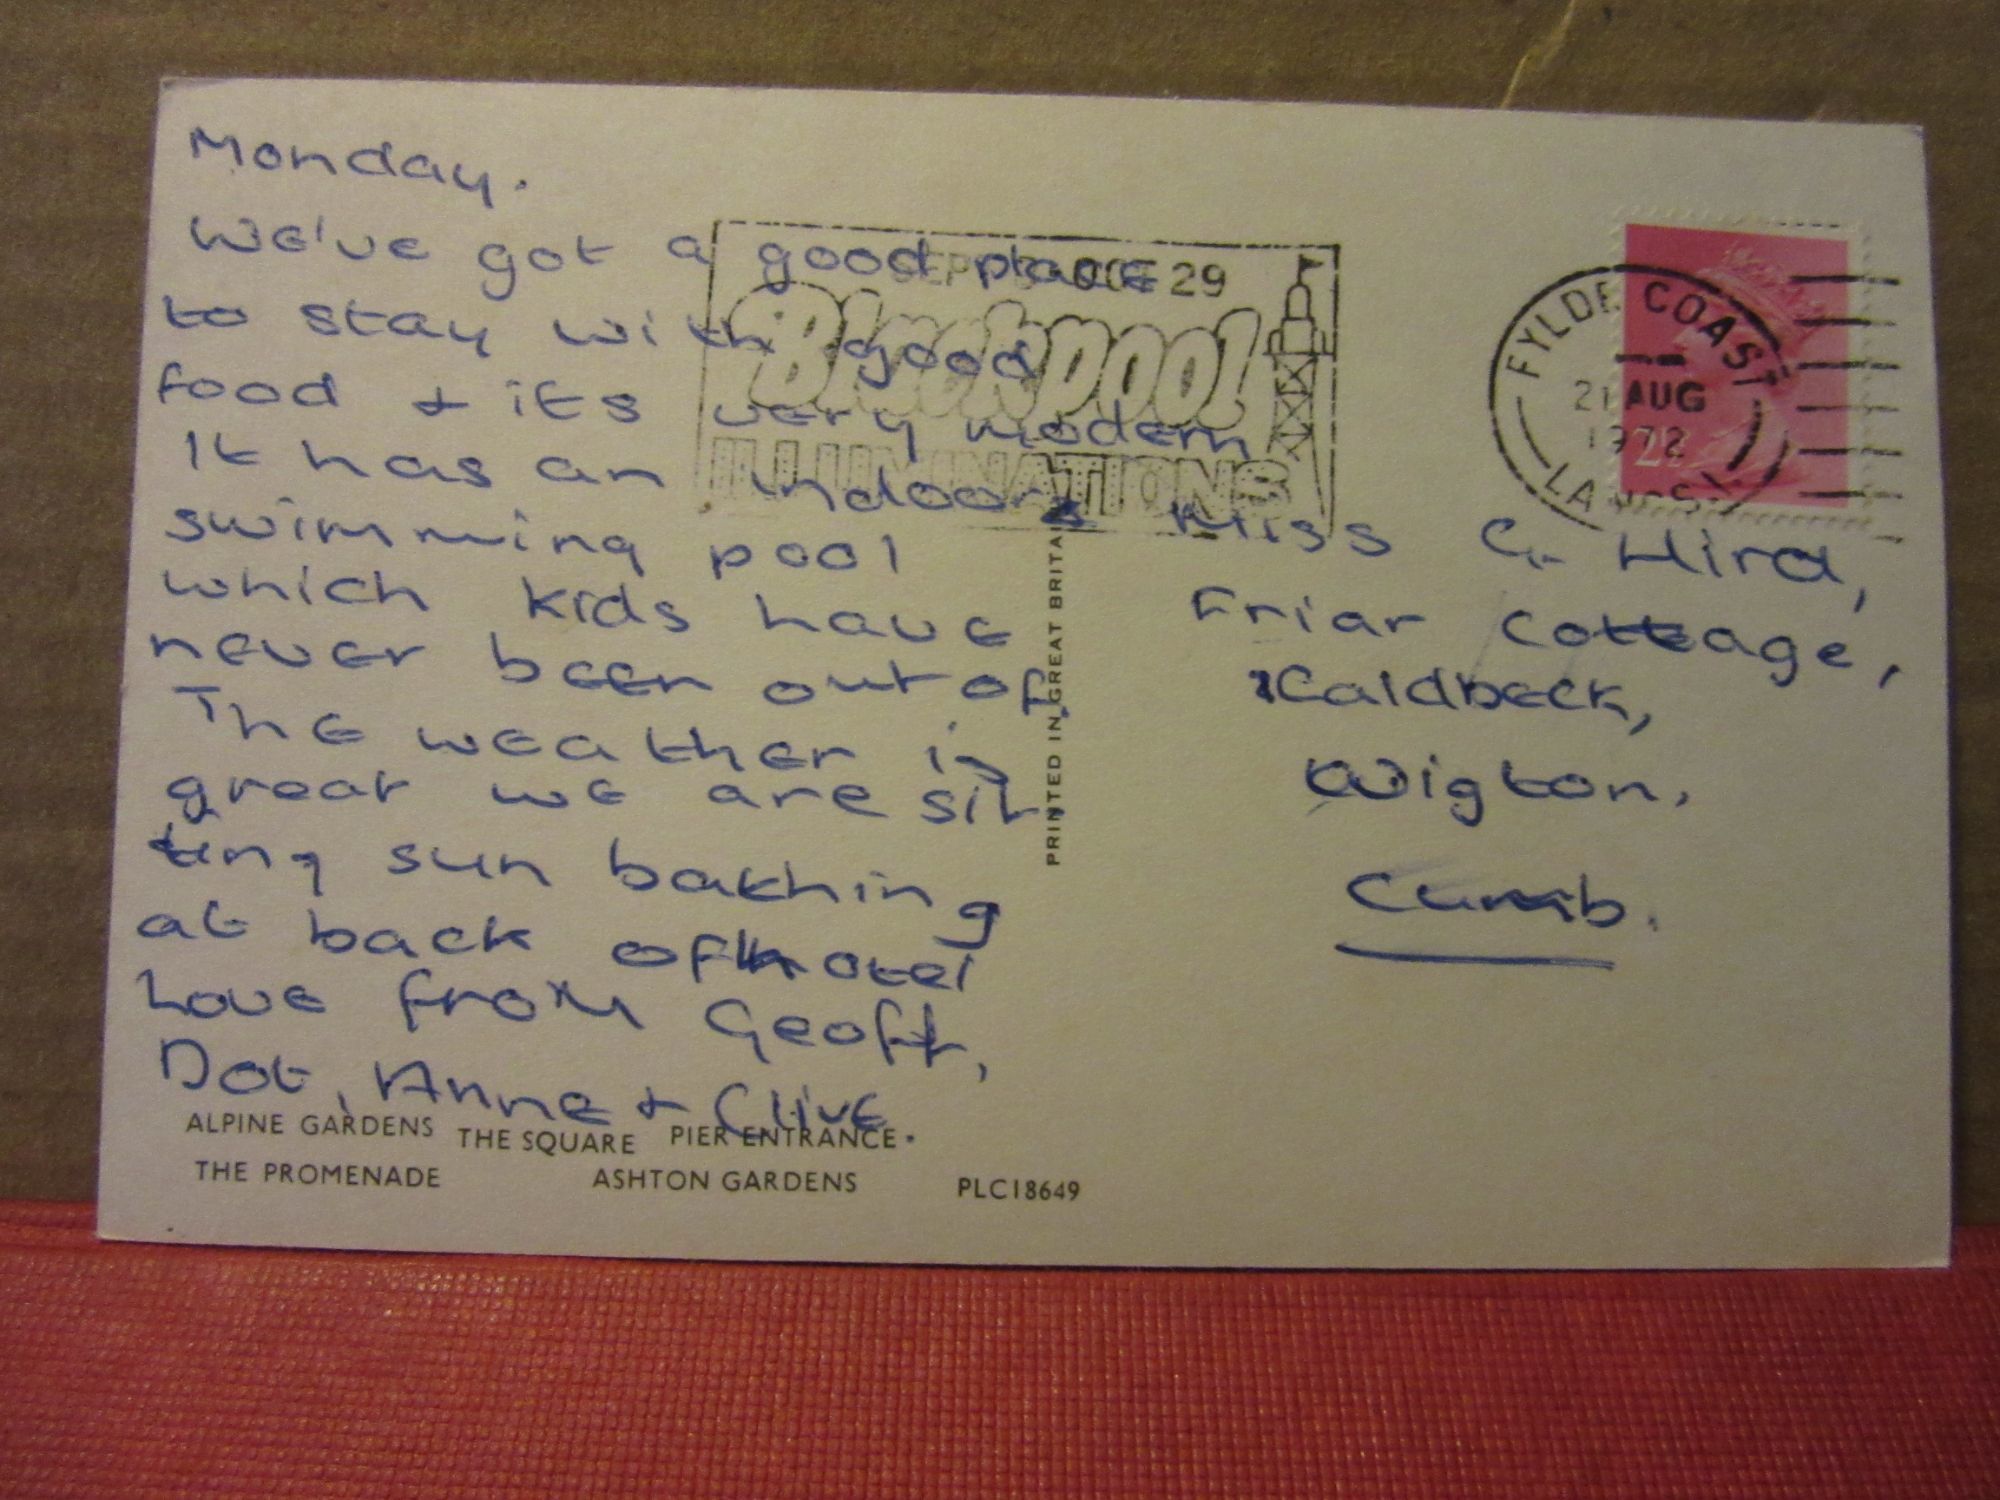 Monday.
We've got a good place
to stay with good
food & its very modern
It has an indoor
swimming pool
which kids have
never been out of.
The weather is
great we are sit
ting sun bathing
at back of hotel
Love from Geoff,
Dot, Anne & Clive.
ALPINE GARDENS THE SQUARE PIER ENTRANCE
THE PROMENADE ASHTON GARDENS PLC18649
PRINTED IN GREAT BRITAIN
29
Blackpool
ILLUMINATIONS
FYLDE COAST
21 AUG
1972
LANCS
Miss G. Hird,
Friar Cottage,
Caldbeck,
Wigton,
Cumb.